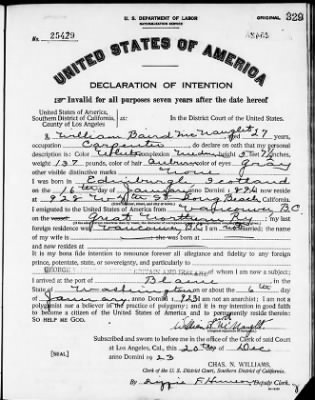 U. S. DEPARTMENT OF LABOR
NATURALIZATION SERVICE
ORIGINAL 329
No. 25429
UNITED STATES OF AMERICA
DECLARATION OF INTENTION
Invalid for all purposes seven years after the date hereof
United States of America,
Southern District of California, ss:
County of Los Angeles
In the District Court of the United States.
I, William Baird McNaught, aged 27 years,
occupation Carpenter, do declare on oath that my personal
description is: Color White, complexion, height 5 feet inches,
weight 137 pounds, color of hair Auburn, color of eyes gray
other visible distinctive marks None
I was born in Edinburgh Scotland
on the 16th day of January, anno Domini 1896; I now reside
at 922 St. Long Beach, California.
I emigrated to the United States of America from Vancouver B.C.
on the Great Northern Ry; my last
foreign residence was Vancouver B.C.; I am not married; the name
of my wife is; she was born at
and now resides at
It is my bona fide intention to renounce forever all allegiance and fidelity to any foreign
prince, potentate, state, or sovereignty, and particularly to
GEORGE BRITAIN AND IRELAND, of whom I am now a subject;
I arrived at the port of Blaine, in the
State of Washington, on or about the 6th day
of January, anno Domini 1923; I am not an anarchist; I am not a
polygamist nor a believer in the practice of polygamy; and it is my intention in good faith
to become a citizen of the United States of America and to permanently reside therein:
SO HELP ME GOD.
William B. McNaught
Subscribed and sworn to before me in the office of the Clerk of said Court
at Los Angeles, Cal., this 20th day of Dec
anno Domini 1923
[SEAL]
CHAS. N. WILLIAMS,
Clerk of the U. S. District Court, Southern District of California.
By, Deputy Clerk.